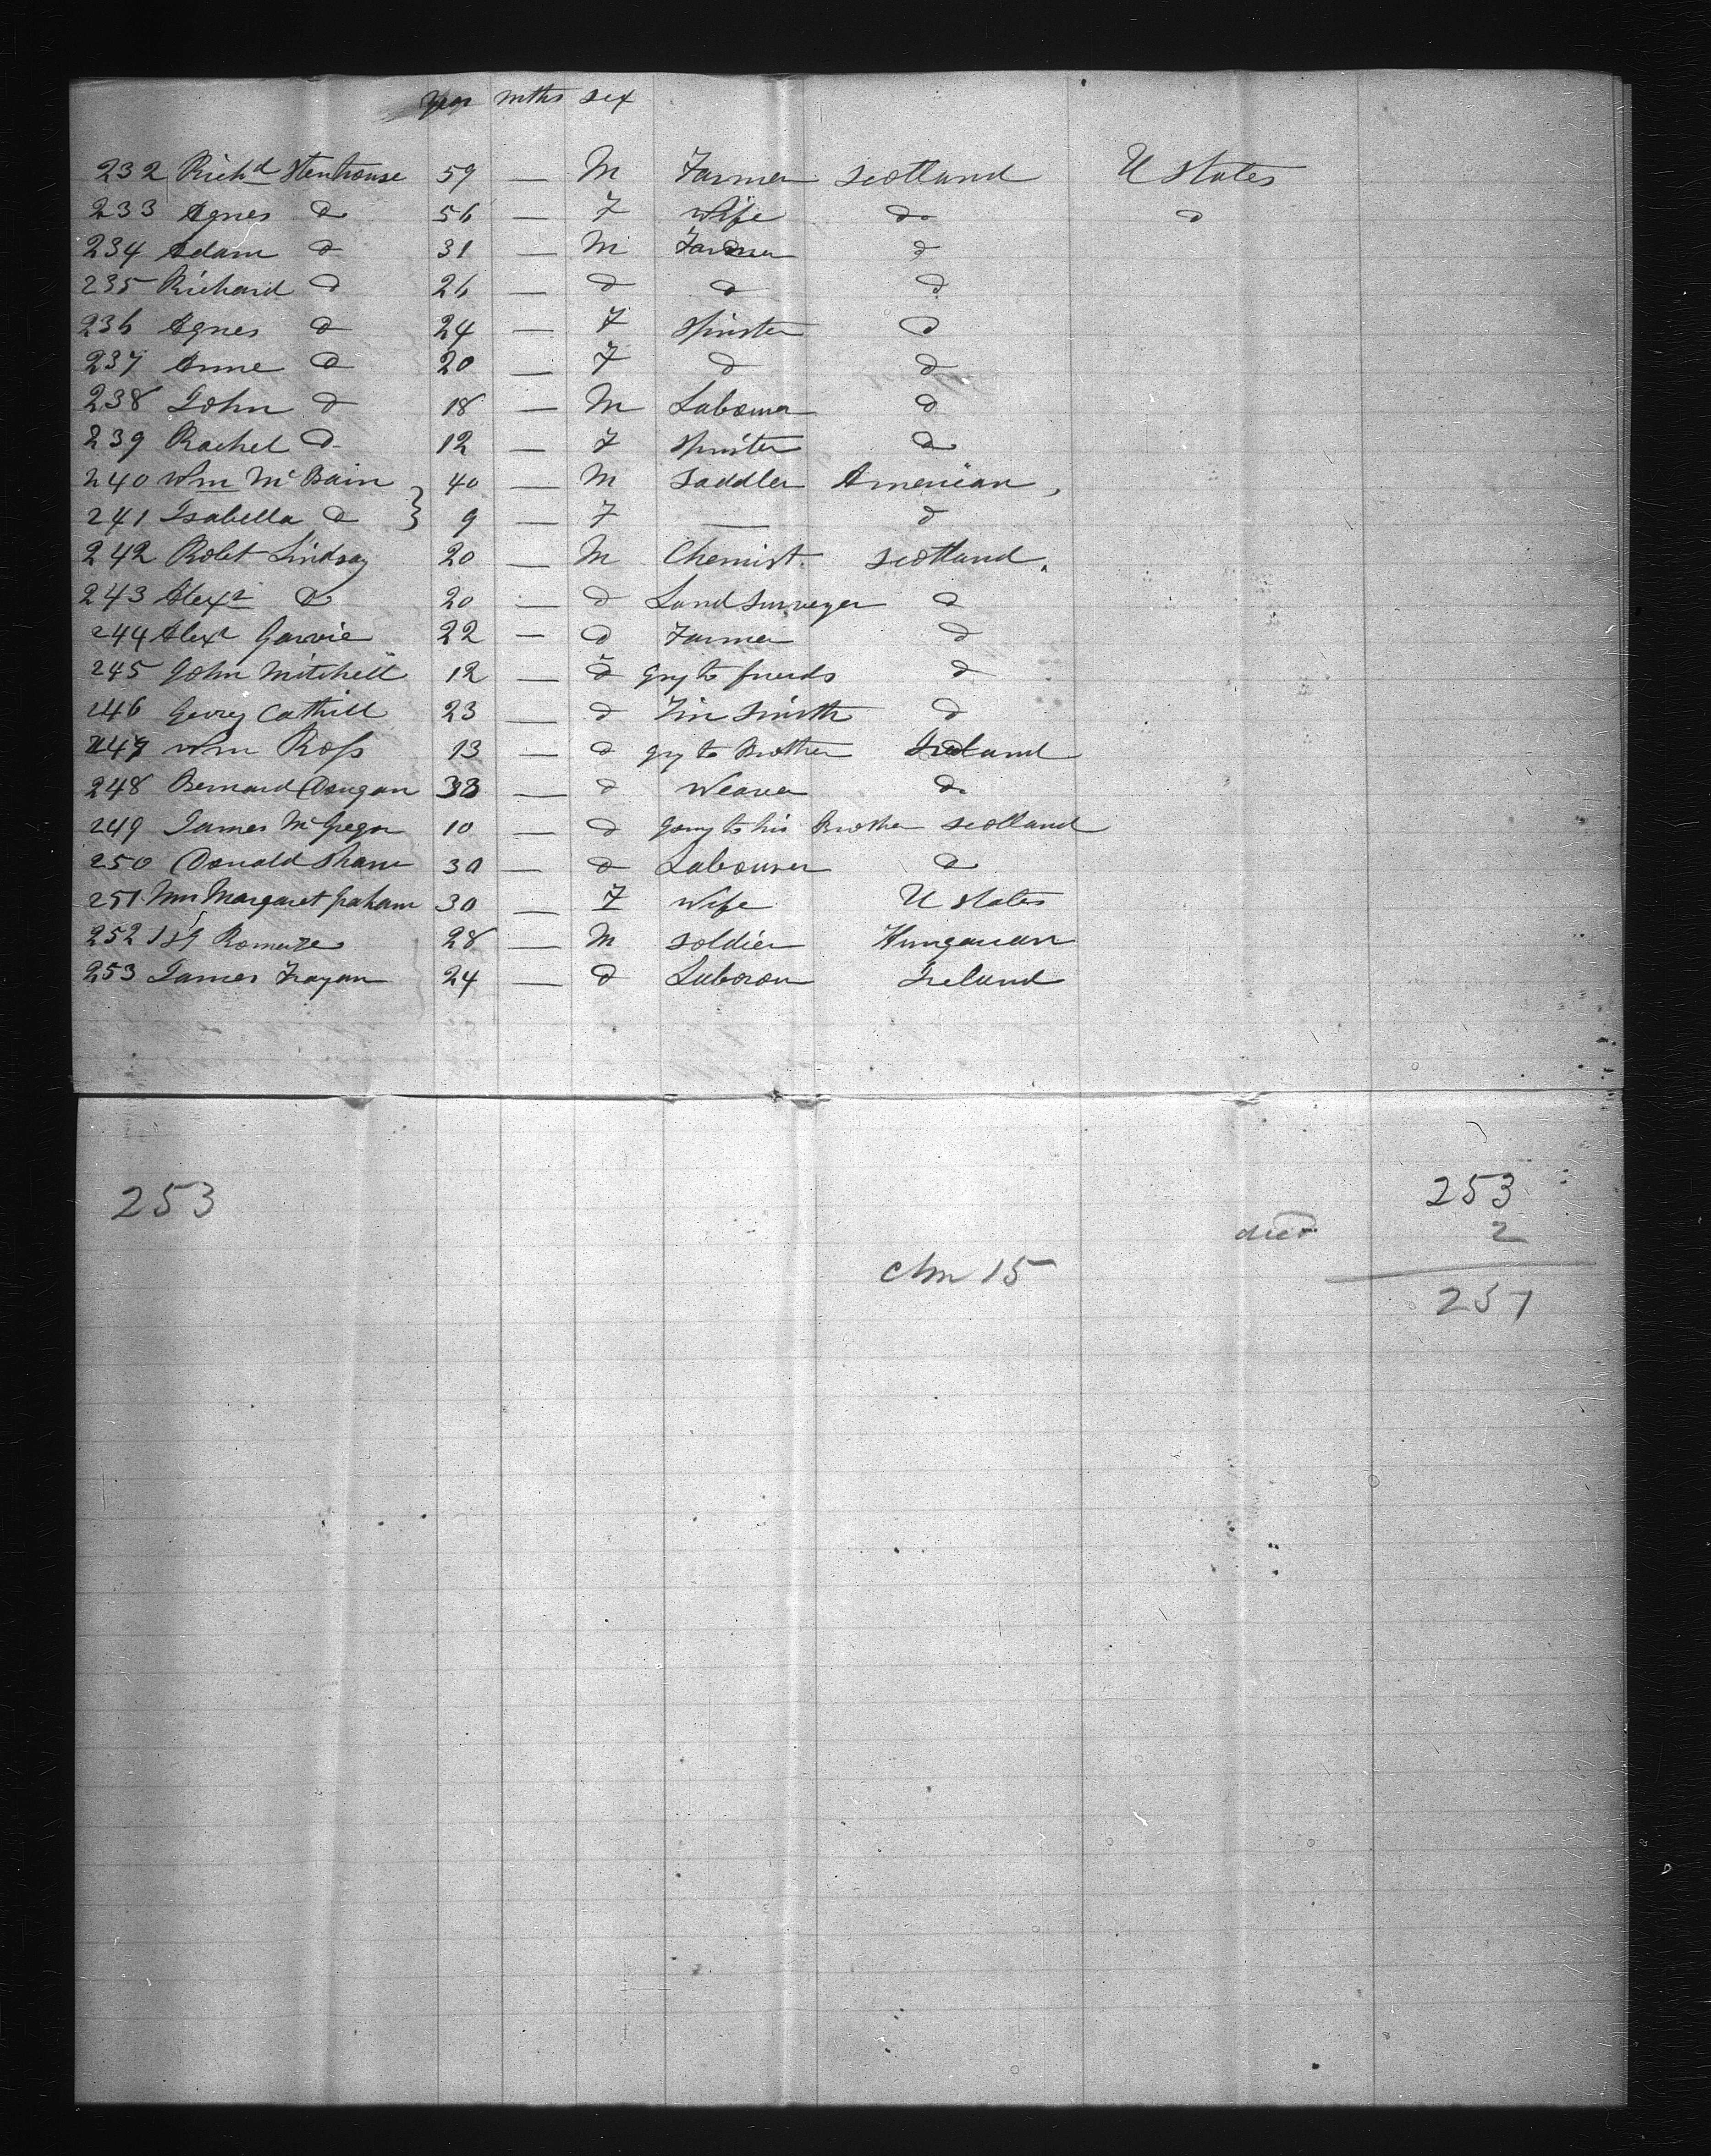 yrs mths sex
232 Richd Stenhouse 59 — M Farmer Scotland U States
233 Agnes do 56 — F Wife do do
234 Adam do 31 — M Farmer do
235 Richard do 26 — do do do
236 Agnes do 24 — F Spinster do
237 Anne do 20 — F do do
238 John do 18 — M Labourer do
239 Rachel do 12 — F Spinster do
240 Wm McBain 40 — M Saddler American
241 Isabella do 9 — F — do
242 Robt Lindsay 20 — M Chemist Scotland
243 Alexr do 20 — do Land Surveyor do
244 Alexr Garvie 22 — do Farmer do
245 John Mitchell 12 — do gng to friends do
246 Georg Cathill 23 — do Tin Smith do
247 Wm Ross 13 — do gng to Brother Ireland
248 Bernard Dougan 33 — do Weaver do
249 James McGregor 10 — do Going to his Brother Scotland
250 Donald Shaw 30 — do Labourer do
251 Mrs Margaret Graham 30 — F Wife U States
252 28 — M Soldier Hungarian
253 James 24 — do Laborour Ireland
253 253
died 2
chn 15
251